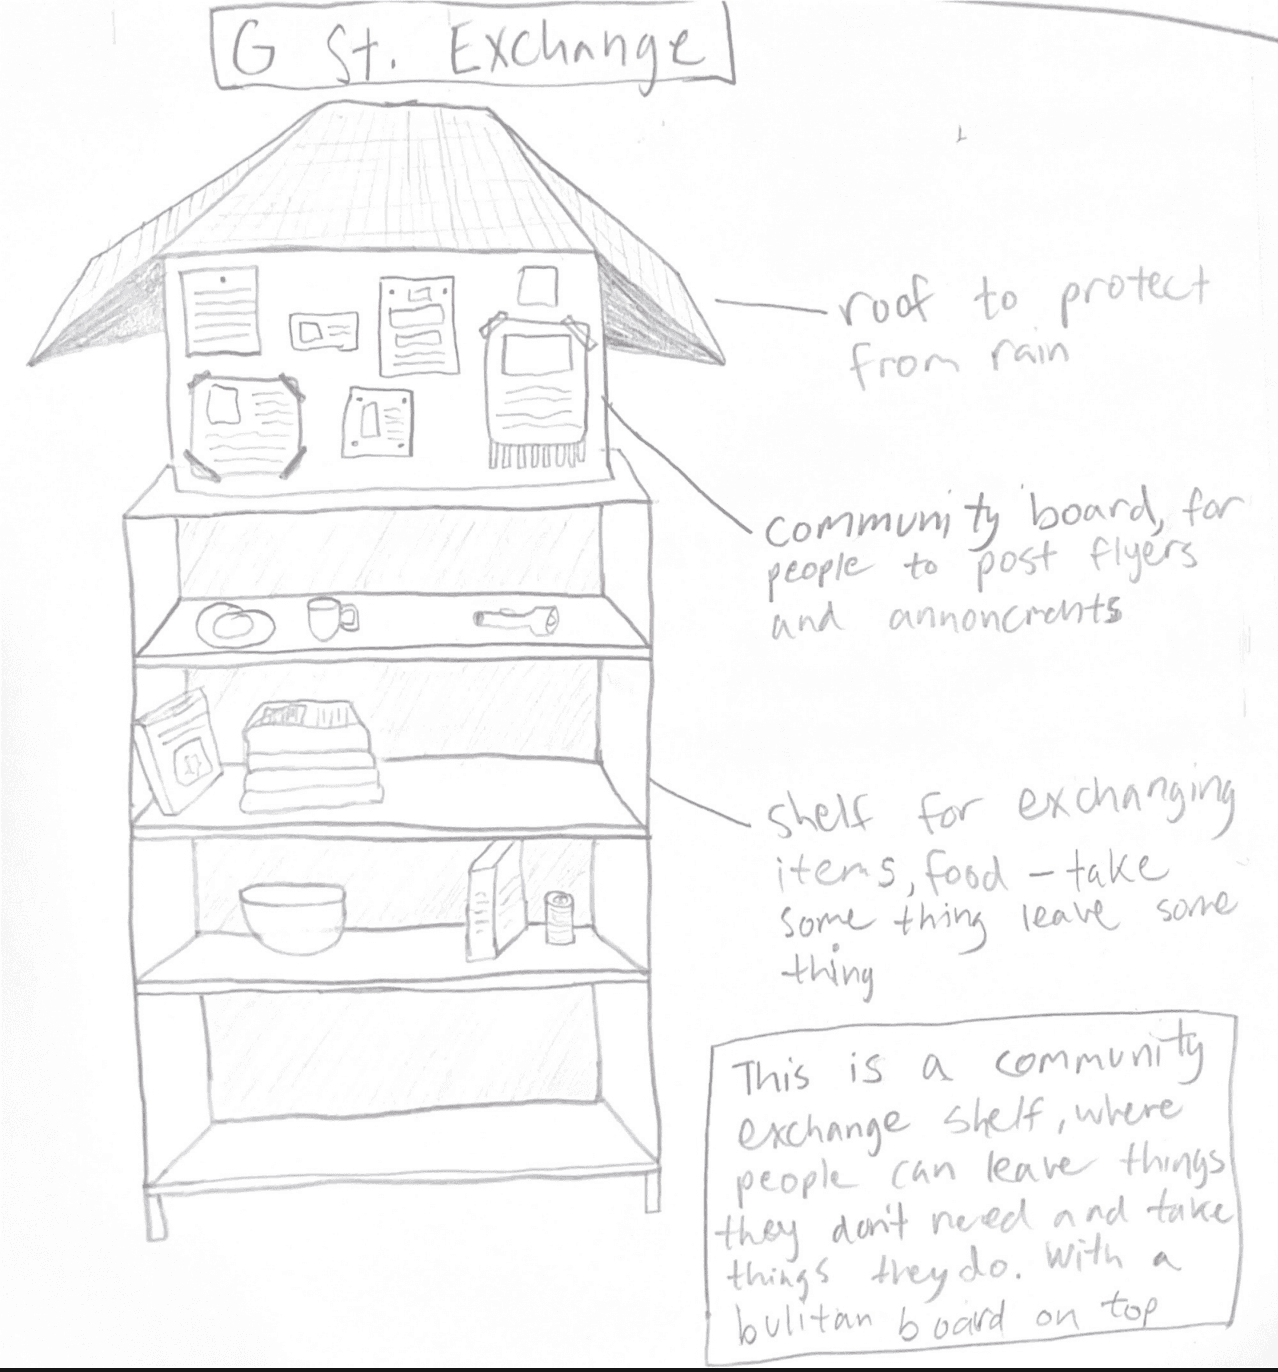 G St. Exchange
roof to protect
from rain
community board, for
people to post flyers
and annoncments
shelf for exchanging
items, food - take
some thing leave some
thing
This is a community
exchange shelf, where
people can leave things
they don't need and take
things they do. With a
bulitan board on top